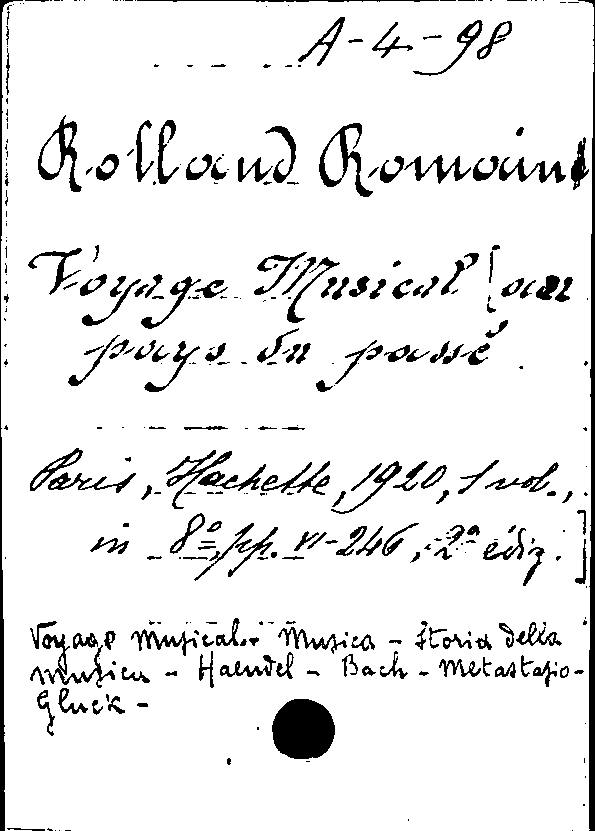 A-4-98
Rolland Romain
Voyage Musical [au
pays du passé
Paris, Hachette, 1920, 1 vol.,
in 8º, pp. VI-246, 2ª ediz.]
Voyage Musical. Musica - Storia della
musica - Haendel - Bach - Metastasio-
Gluck -